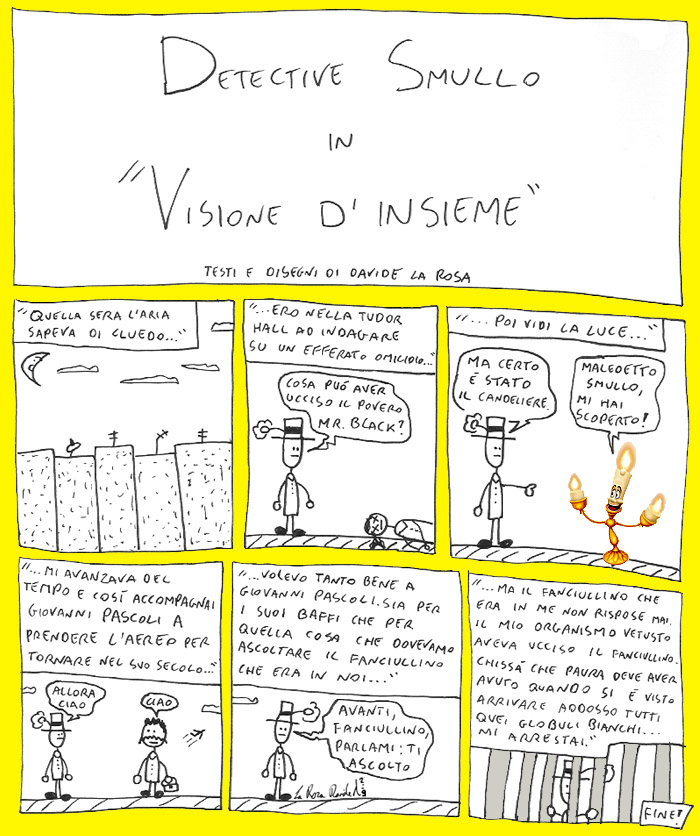 DETECTIVE SMULLO
IN
"VISIONE D'INSIEME"
TESTI E DISEGNI DI DAVIDE LA ROSA
"QUELLA SERA L'ARIA
SAPEVA DI CLUEDO..."
"...ERO NELLA TUDOR
HALL AD INDAGARE
SU UN EFFERATO OMICIDIO..."
COSA PUÓ AVER
UCCISO IL POVERO
MR. BLACK?
"...POI VIDI LA LUCE..."
MA CERTO
É STATO
IL CANDELIERE.
MALEDETTO
SMULLO,
MI HAI
SCOPERTO!
"...MI AVANZAVA DEL
TEMPO E COSÍ ACCOMPAGNAI
GIOVANNI PASCOLI A
PRENDERE L'AEREO PER
TORNARE NEL SUO SECOLO..."
ALLORA
CIAO
CIAO
"...VOLEVO TANTO BENE A
GIOVANNI PASCOLI. SIA PER
I SUOI BAFFI CHE PER
QUELLA COSA CHE DOVEVAMO
ASCOLTARE IL FANCIULLINO
CHE ERA IN NOI..."
AVANTI,
FANCIULLINO,
PARLAMI: TI
ASCOLTO
"...MA IL FANCIULLINO CHE
ERA IN ME NON RISPOSE MAI.
IL MIO ORGANISMO VETUSTO
AVEVA UCCISO IL FANCIULLINO.
CHISSÁ CHE PAURA DEVE AVER
AVUTO QUANDO SI É VISTO
ARRIVARE ADDOSSO TUTTI
QUEI GLOBULI BIANCHI...
MI ARRESTAI."
La Rosa Davide
FINE!